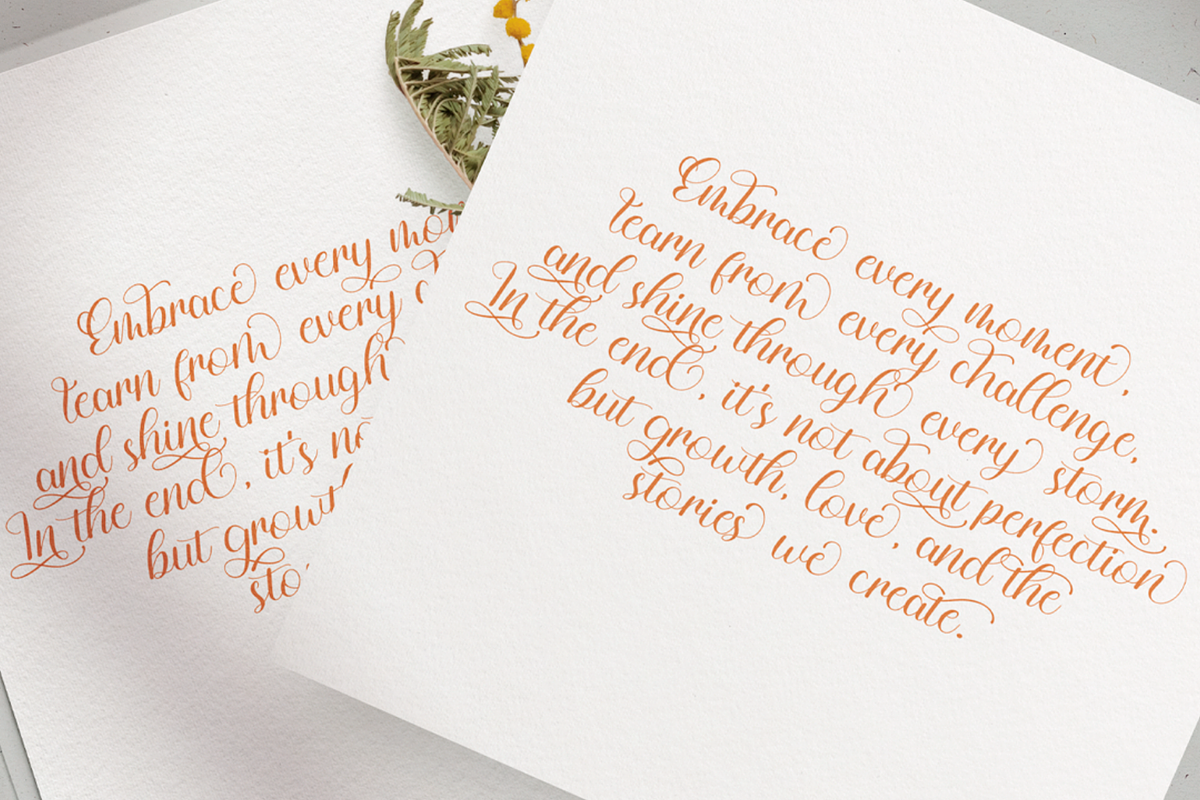 Embrace every
learn from every
and shine through
In the end, it's
but
Embrace every moment,
learn from every challenge,
and shine through every storm.
In the end, it's not about perfection
but growth, love, and the
stories we create.